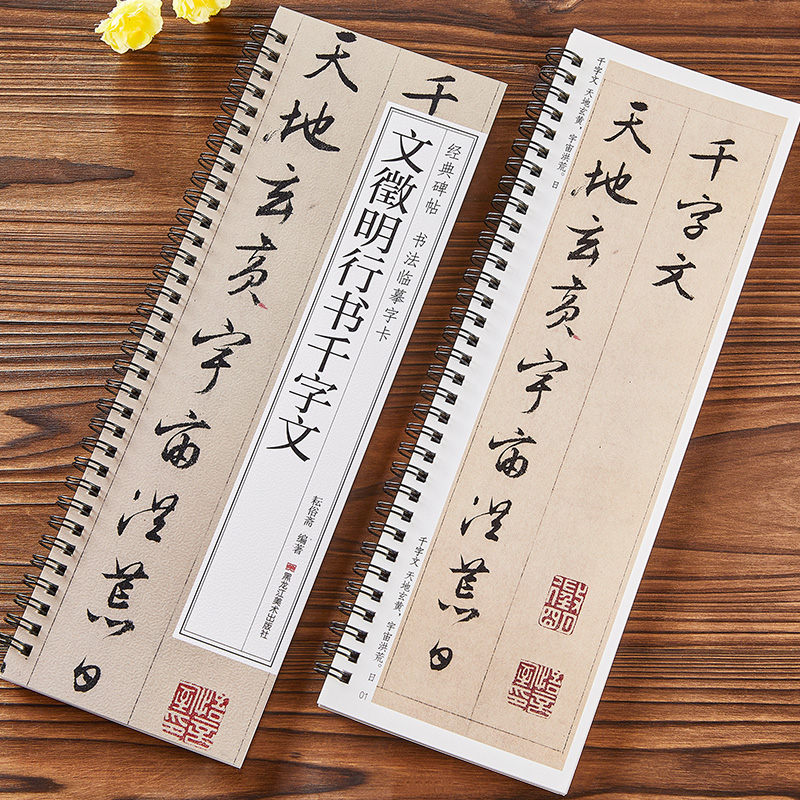 千
经典碑帖 书法临摹字卡
文徵明行书千字文
耘俗斋 编著
黑龙江美术出版社
天地玄黄宇宙洪荒日
悟言室印
千字文
天地玄黄宇宙洪荒日
徵明
悟言室印
千字文 天地玄黄，宇宙洪荒。日
千字文 天地玄黄，宇宙洪荒。日
01